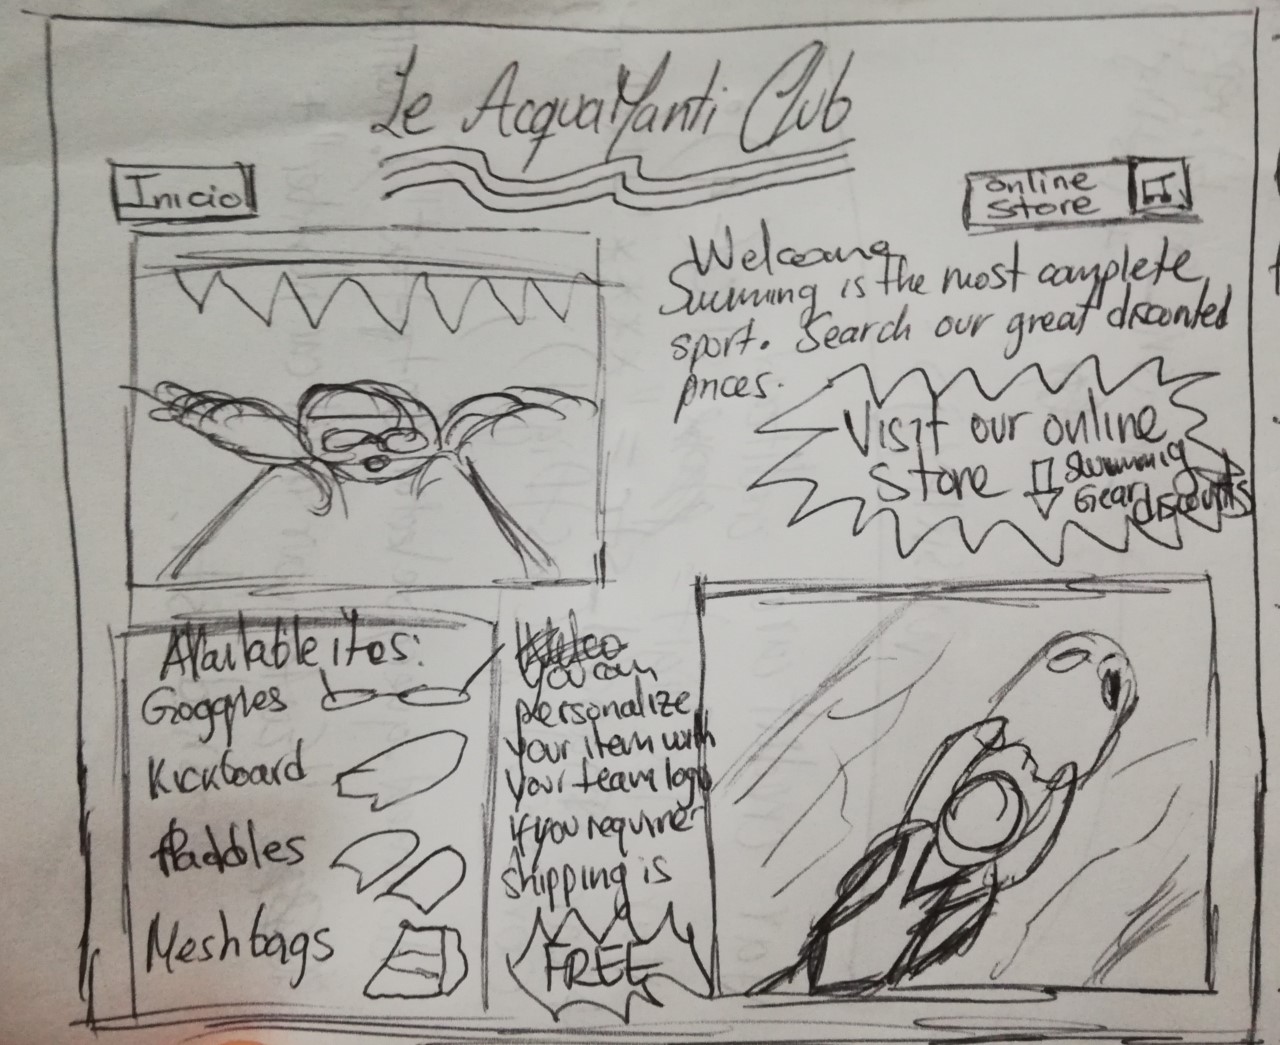 Le AcquaManti Club
Inicio
online
store
Welcome
Swimming is the most complete
sport. Search our great discounted
prices.
Visit our online
store Swimming
Gear discounts
Available ites:
Goggles
Kickboard
Paddles
Mesh bags
You can
personalize
your item with
your team logo
if you require
shipping is
FREE